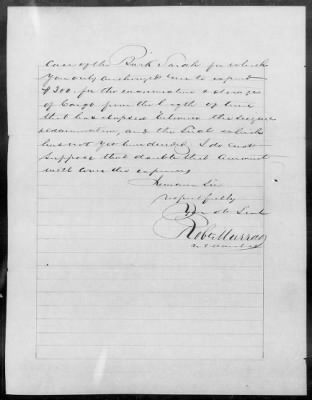 Case of the Bark Sarah for which
You only authorized me to expend
$300. for the examination & storage
of Cargo from the length of time
that has elapsed between the seizure
examination, and the trial which
has not yet been had, I do not
suppose that double that amount
will cover the expenses
I remain Sir
respectfully
Your Obt Servt
Robt Murray
U S Marshal